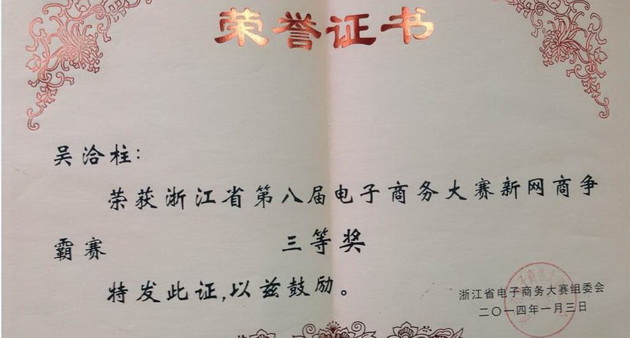 荣誉证书
吴洽柱：
荣获浙江省第八届电子商务大赛新网商争
霸赛 三等奖
特发此证，以兹鼓励。
浙江省电子商务大赛组委会
二〇一四年一月三日